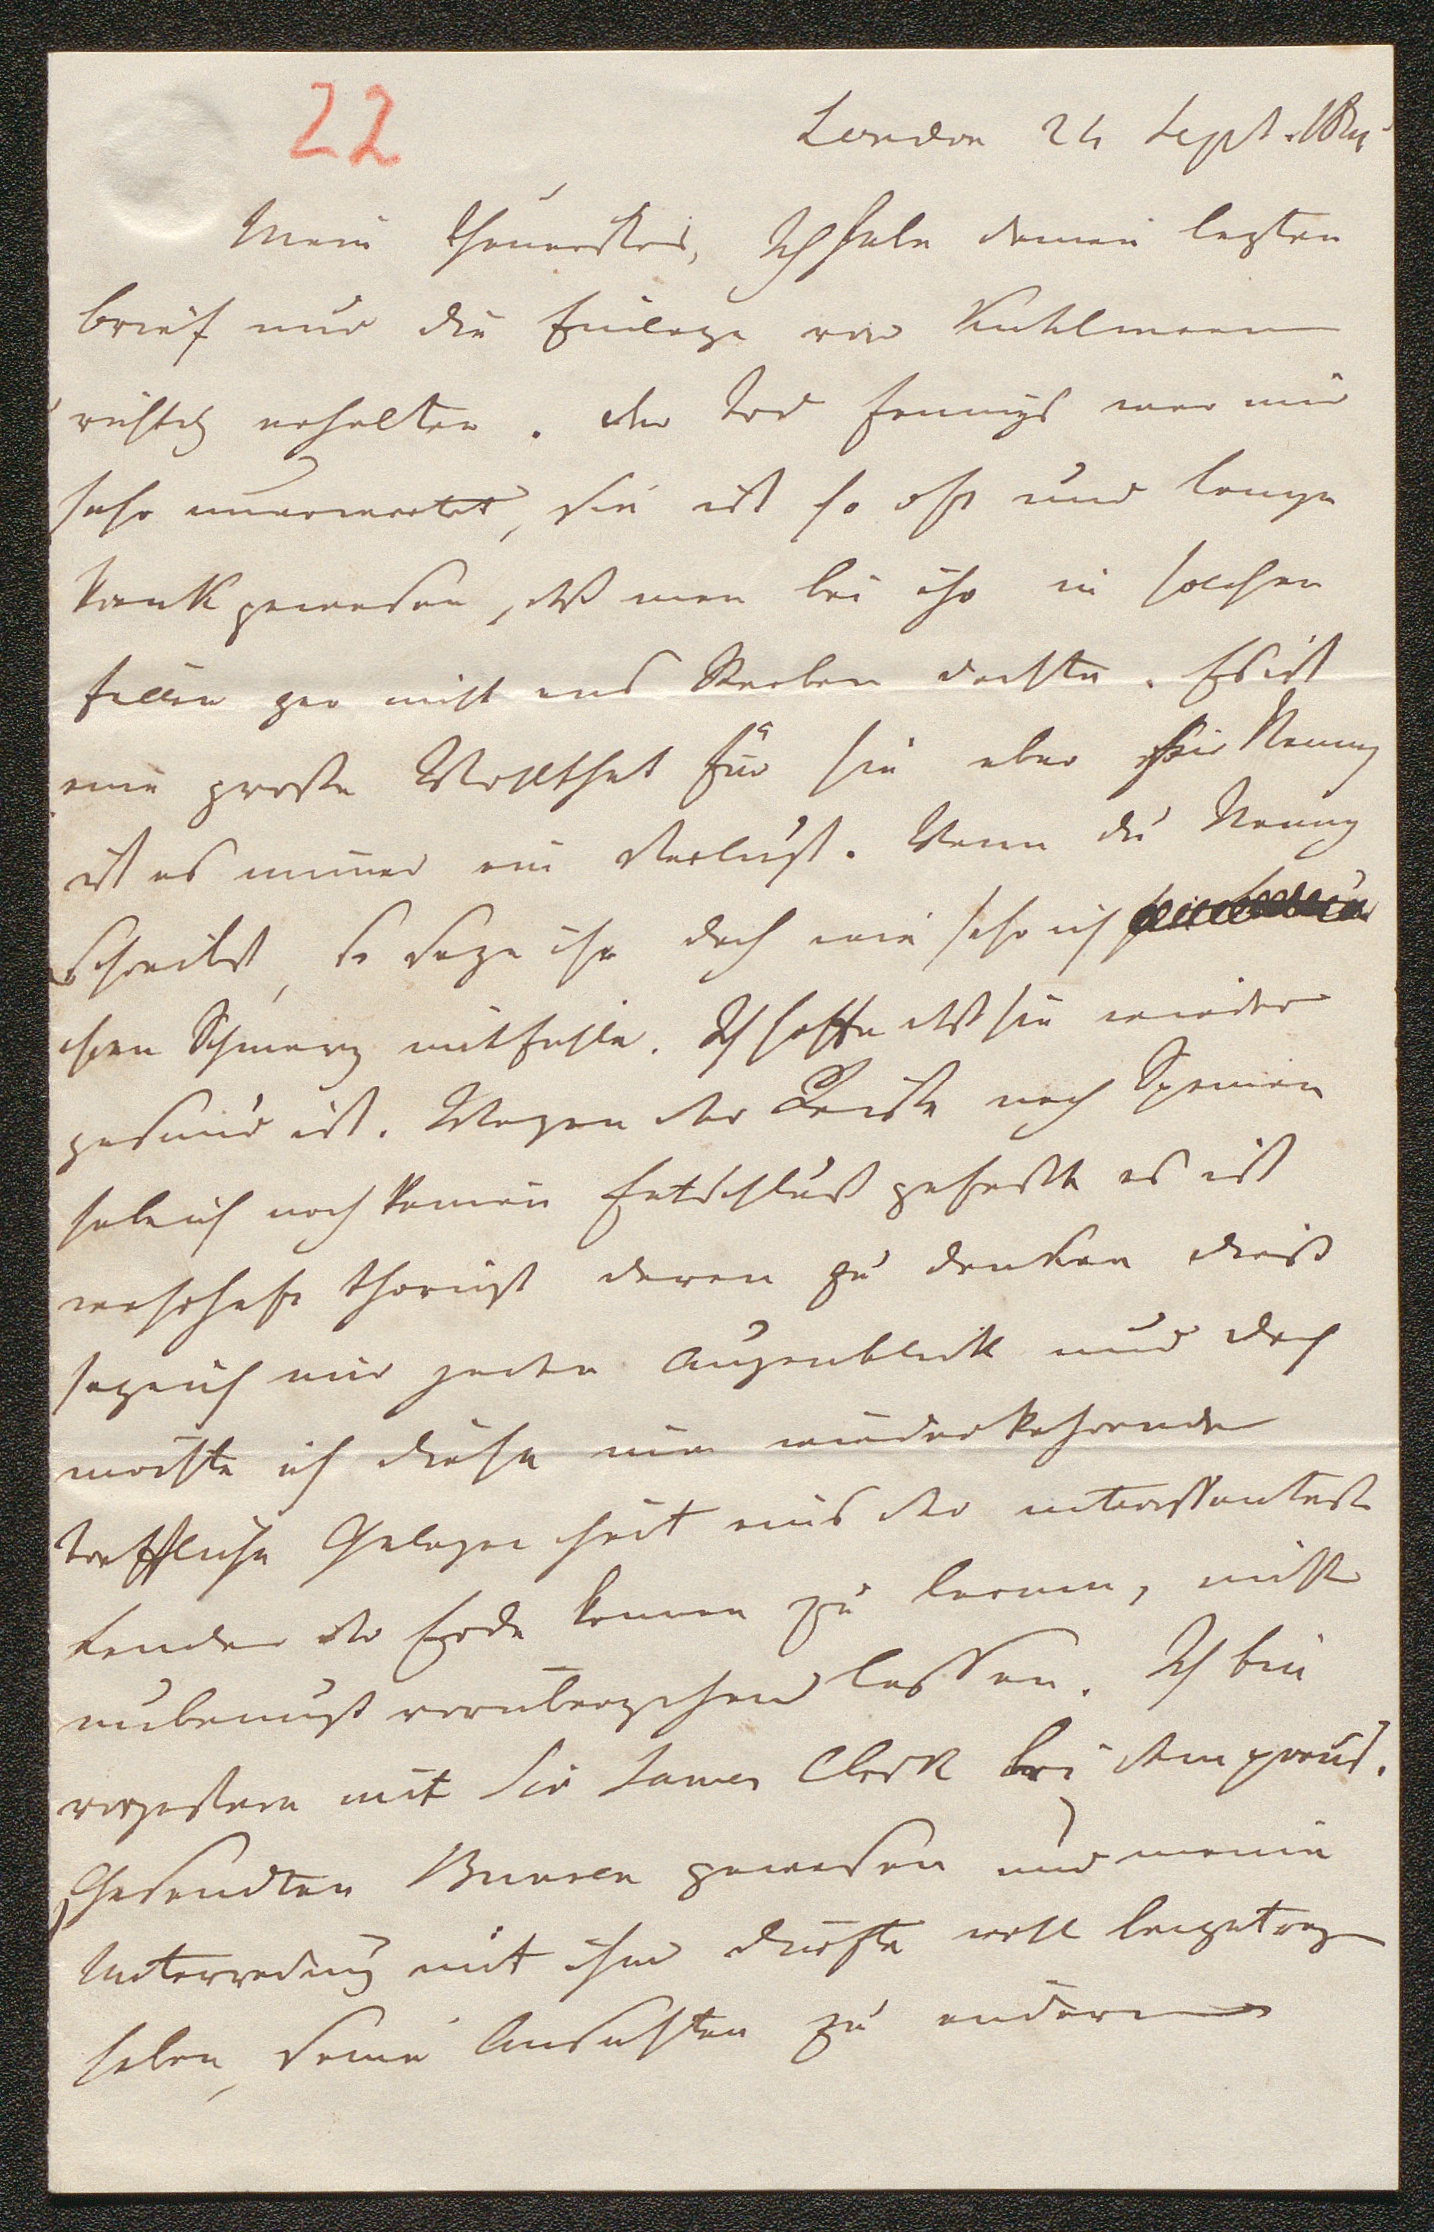 22
London 24 Sept. 184
Mein theuerstes, Ich habe deinen lezten
brief und die Einlage von Kuhlmann
richtig erhalten. Der Tod Fennys war mir
sehr unerwartet, sie ist so oft und lange
krank gewesen, daß man bei ihr in solchen
fällen gar nicht ans Sterben dachte. Es ist
eine große Wohlthat für sie aber für Nanny
ist es immer ein Verlust. Wenn du Nanny
schreibst, so sage ihr doch wie sehr ich
ihren Schmerz mitfühle. Ich hoffe daß sie wieder
gesund ist. Wegen der Reise nach Spanien
habe ich noch keinen Entschluß gefaßt es ist
wahrhaft thöricht daran zu denken dieß
sage ich mir jeden Augenblick und doch
möchte ich diese nie wiederkehrende
treffliche Gelegenheit eins der interessantest
Länder der Erde kennen zu lernen, nicht
unbenuzt vorübergehen lassen. Ich bin
vorgestern mit Sir James Clark bei dem preuß.
Gesandten Bunsen gewesen und meine
Unterredung mit ihm dürfte wohl beigetragen
haben, seine Ansichten zu ändern